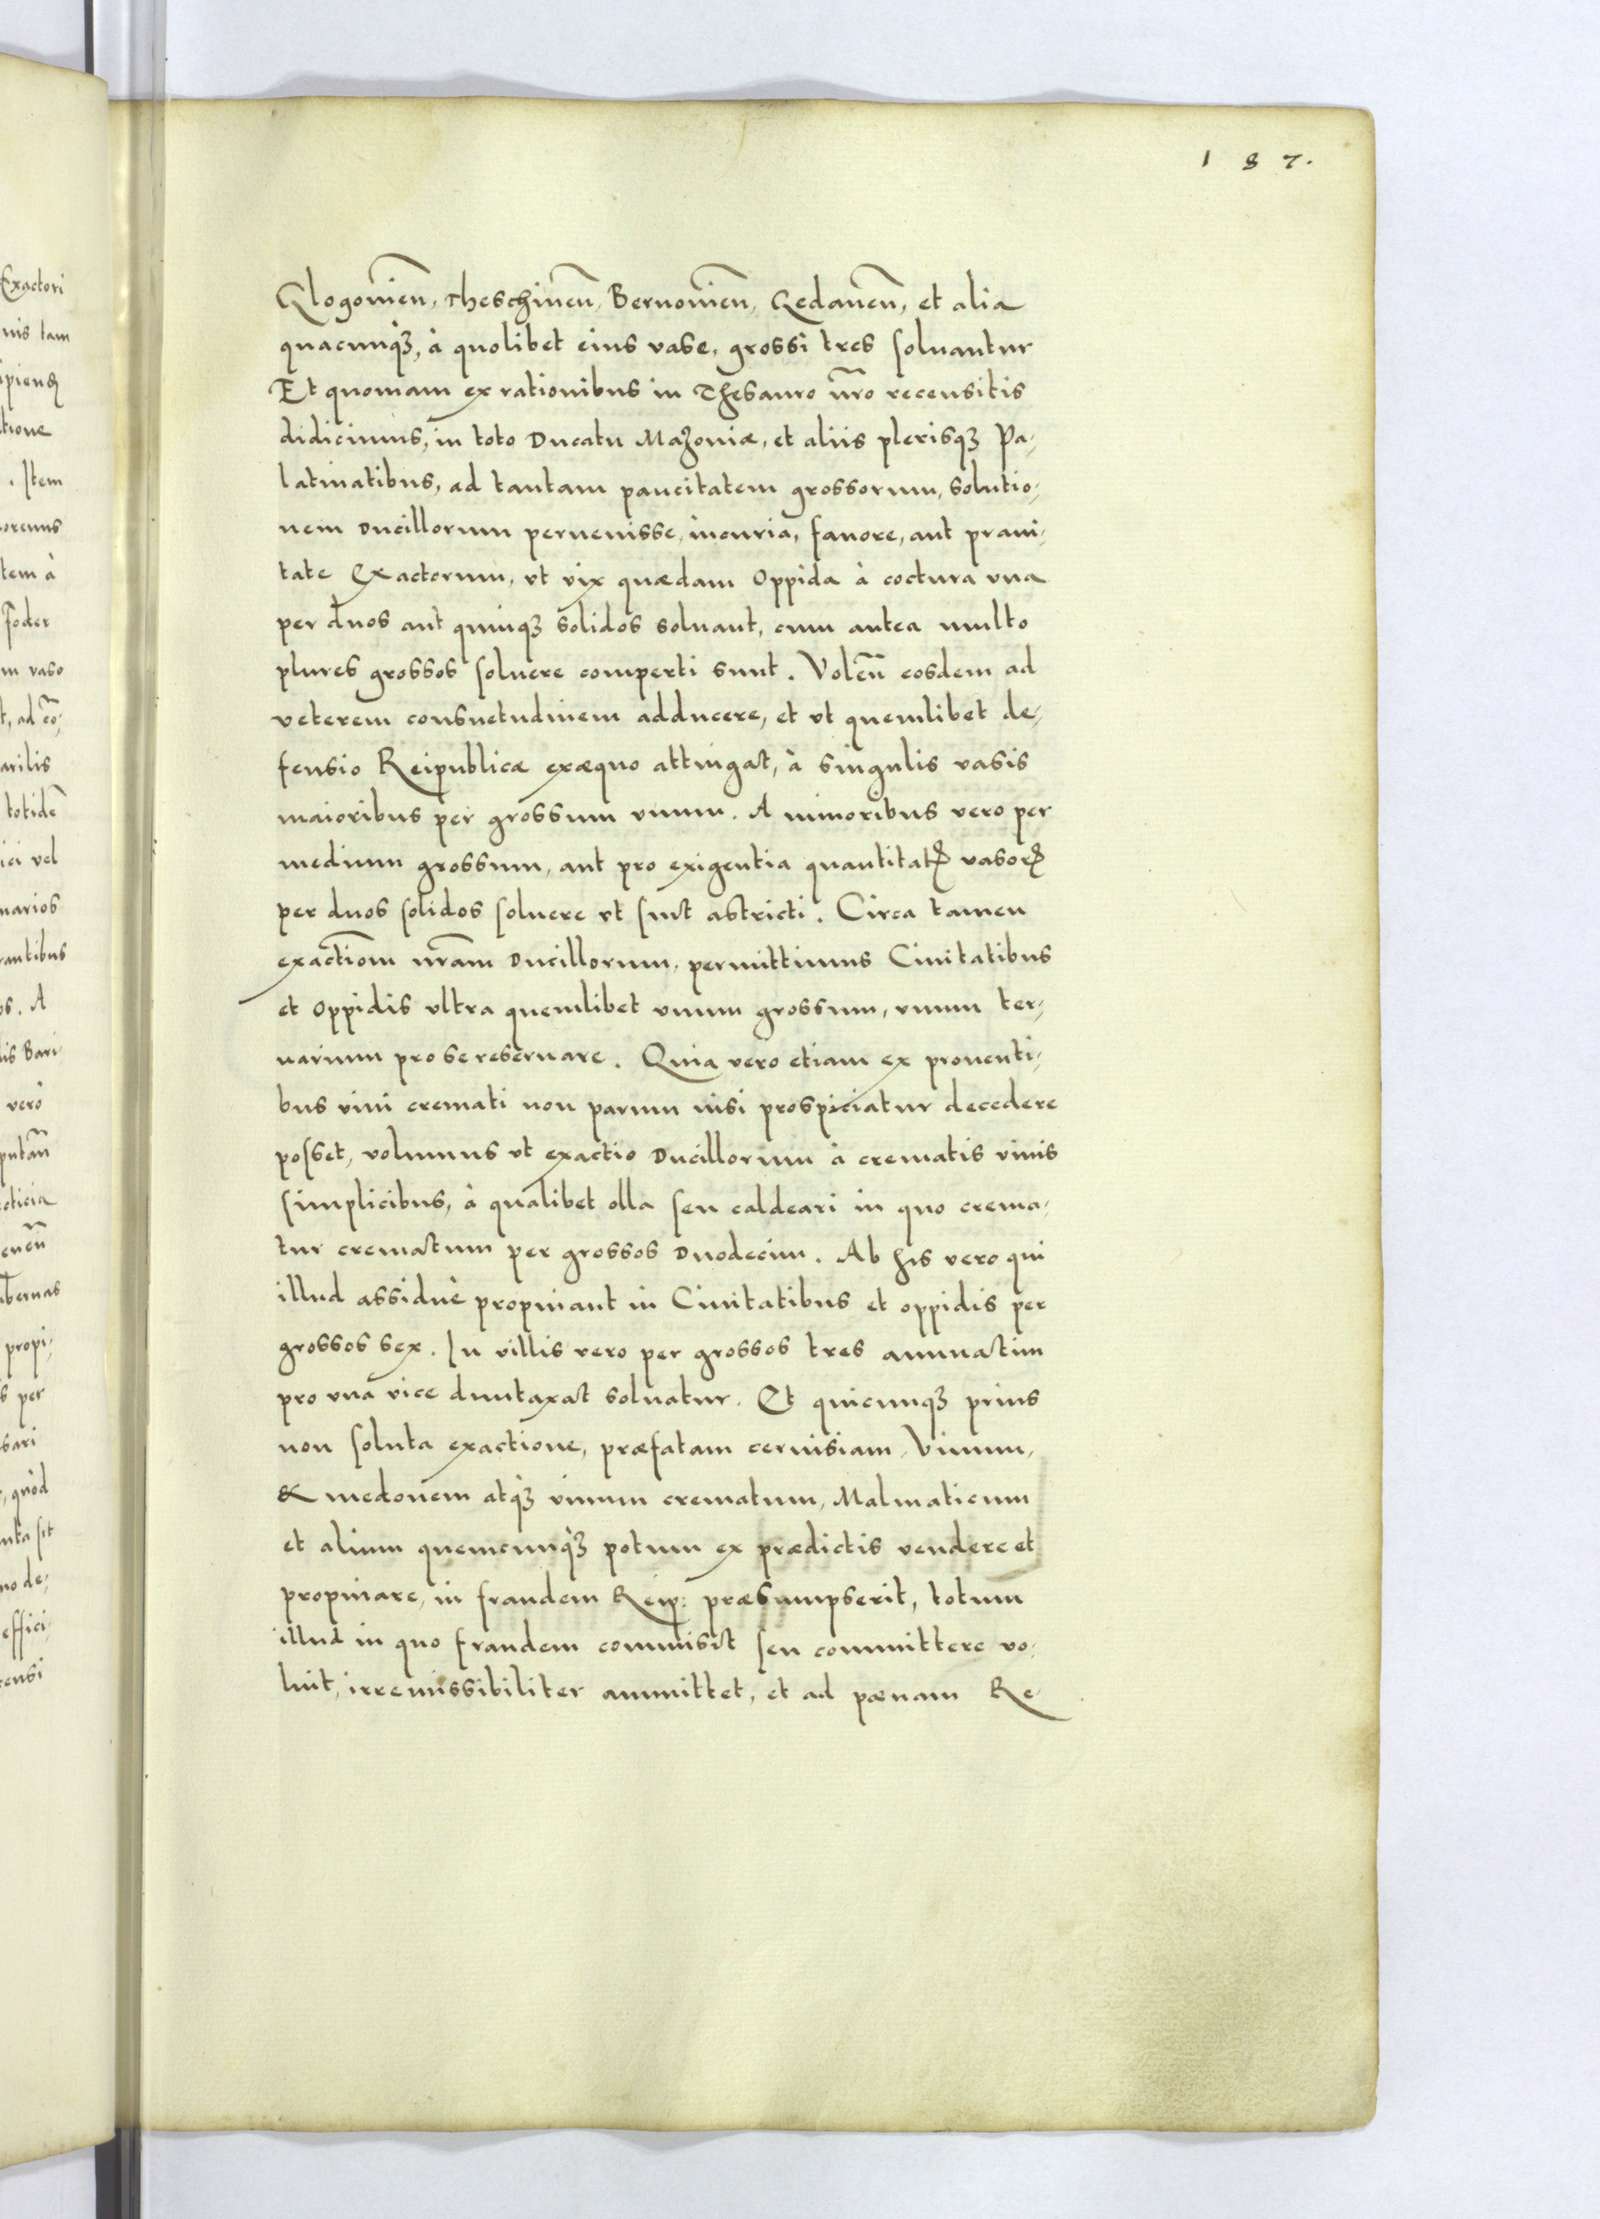 187.
Glogovien̄, Theschinen̄, Bernovien̄, Gedanen̄, et alia
quaecunq;, à quolibet eius vase, grossi tres soluantur
Et quoniam ex rationibus in Thesauro nr̄o recensitis
didicimus, in toto Ducatu Mazoviæ, et aliis plerisq; Pa-
latinatibus, ad tantam paucitatem grossorum, solutio-
nem Ducillorum pervenisse, incuria, favore, aut pravi-
tate Exactorum, vt vix quædam Oppida à coctura vna
per duos aut quinq; solidos soluant, cum antea multo
plures grossos soluere comperti sunt. Volen̄ eosdem ad
veterem consuetudinem adducere, et vt quemlibet de-
fensio Reipublicæ exæquo attingat, à singulis vasis
maioribus per grossum vnum. A minoribus vero per
medium grossum, aut pro exigentia quantitatꝭ vasorꝭ
per duos solidos soluere vt sint astricti. Circa tamen
exactiōm nr̄am Ducillorum, permittimus Ciuitatibus
et Oppidis vltra quemlibet vnum grossum, vnum ter-
narium pro se reseruare. Quia vero etiam ex prouenti-
bus vini cremati non parum nisi prospiciatur decedere
posset, volumus vt exactio Ducillorum à crematis vinis
simplicibus, à qualibet olla seu caldeari in quo crema-
tur crematum per grossos Duodecim. Ab his vero qui
illud assiduè propinant in Ciuitatibus et oppidis per
grossos sex. In villis vero per grossos tres annuatim
pro vna vice duntaxat soluatur. Et quicunq; prius
non soluta exactione, præfatam ceruisiam, Vinum,
& medonem atq; vinum crematum, Malmaticum
et alium quemcunq; potum ex prædictis vendere et
propinare, in fraudem Reip: præsumpserit, totum
illud in quo fraudem commisit seu committere vo-
luit, irremissibiliter ammittet, et ad pœnam Re-
Exactori
nis tam
tione
. Item
oremus
tem à
foder
m vaso
t, ad cō-
arilis
totidē
ici vel
narios
rantibus
os. A
is Bari-
vero
putan̄
cticia
enen̄
bernas
propi-
s per
sari
, quòd
nta sit
no de-
effici-
censi